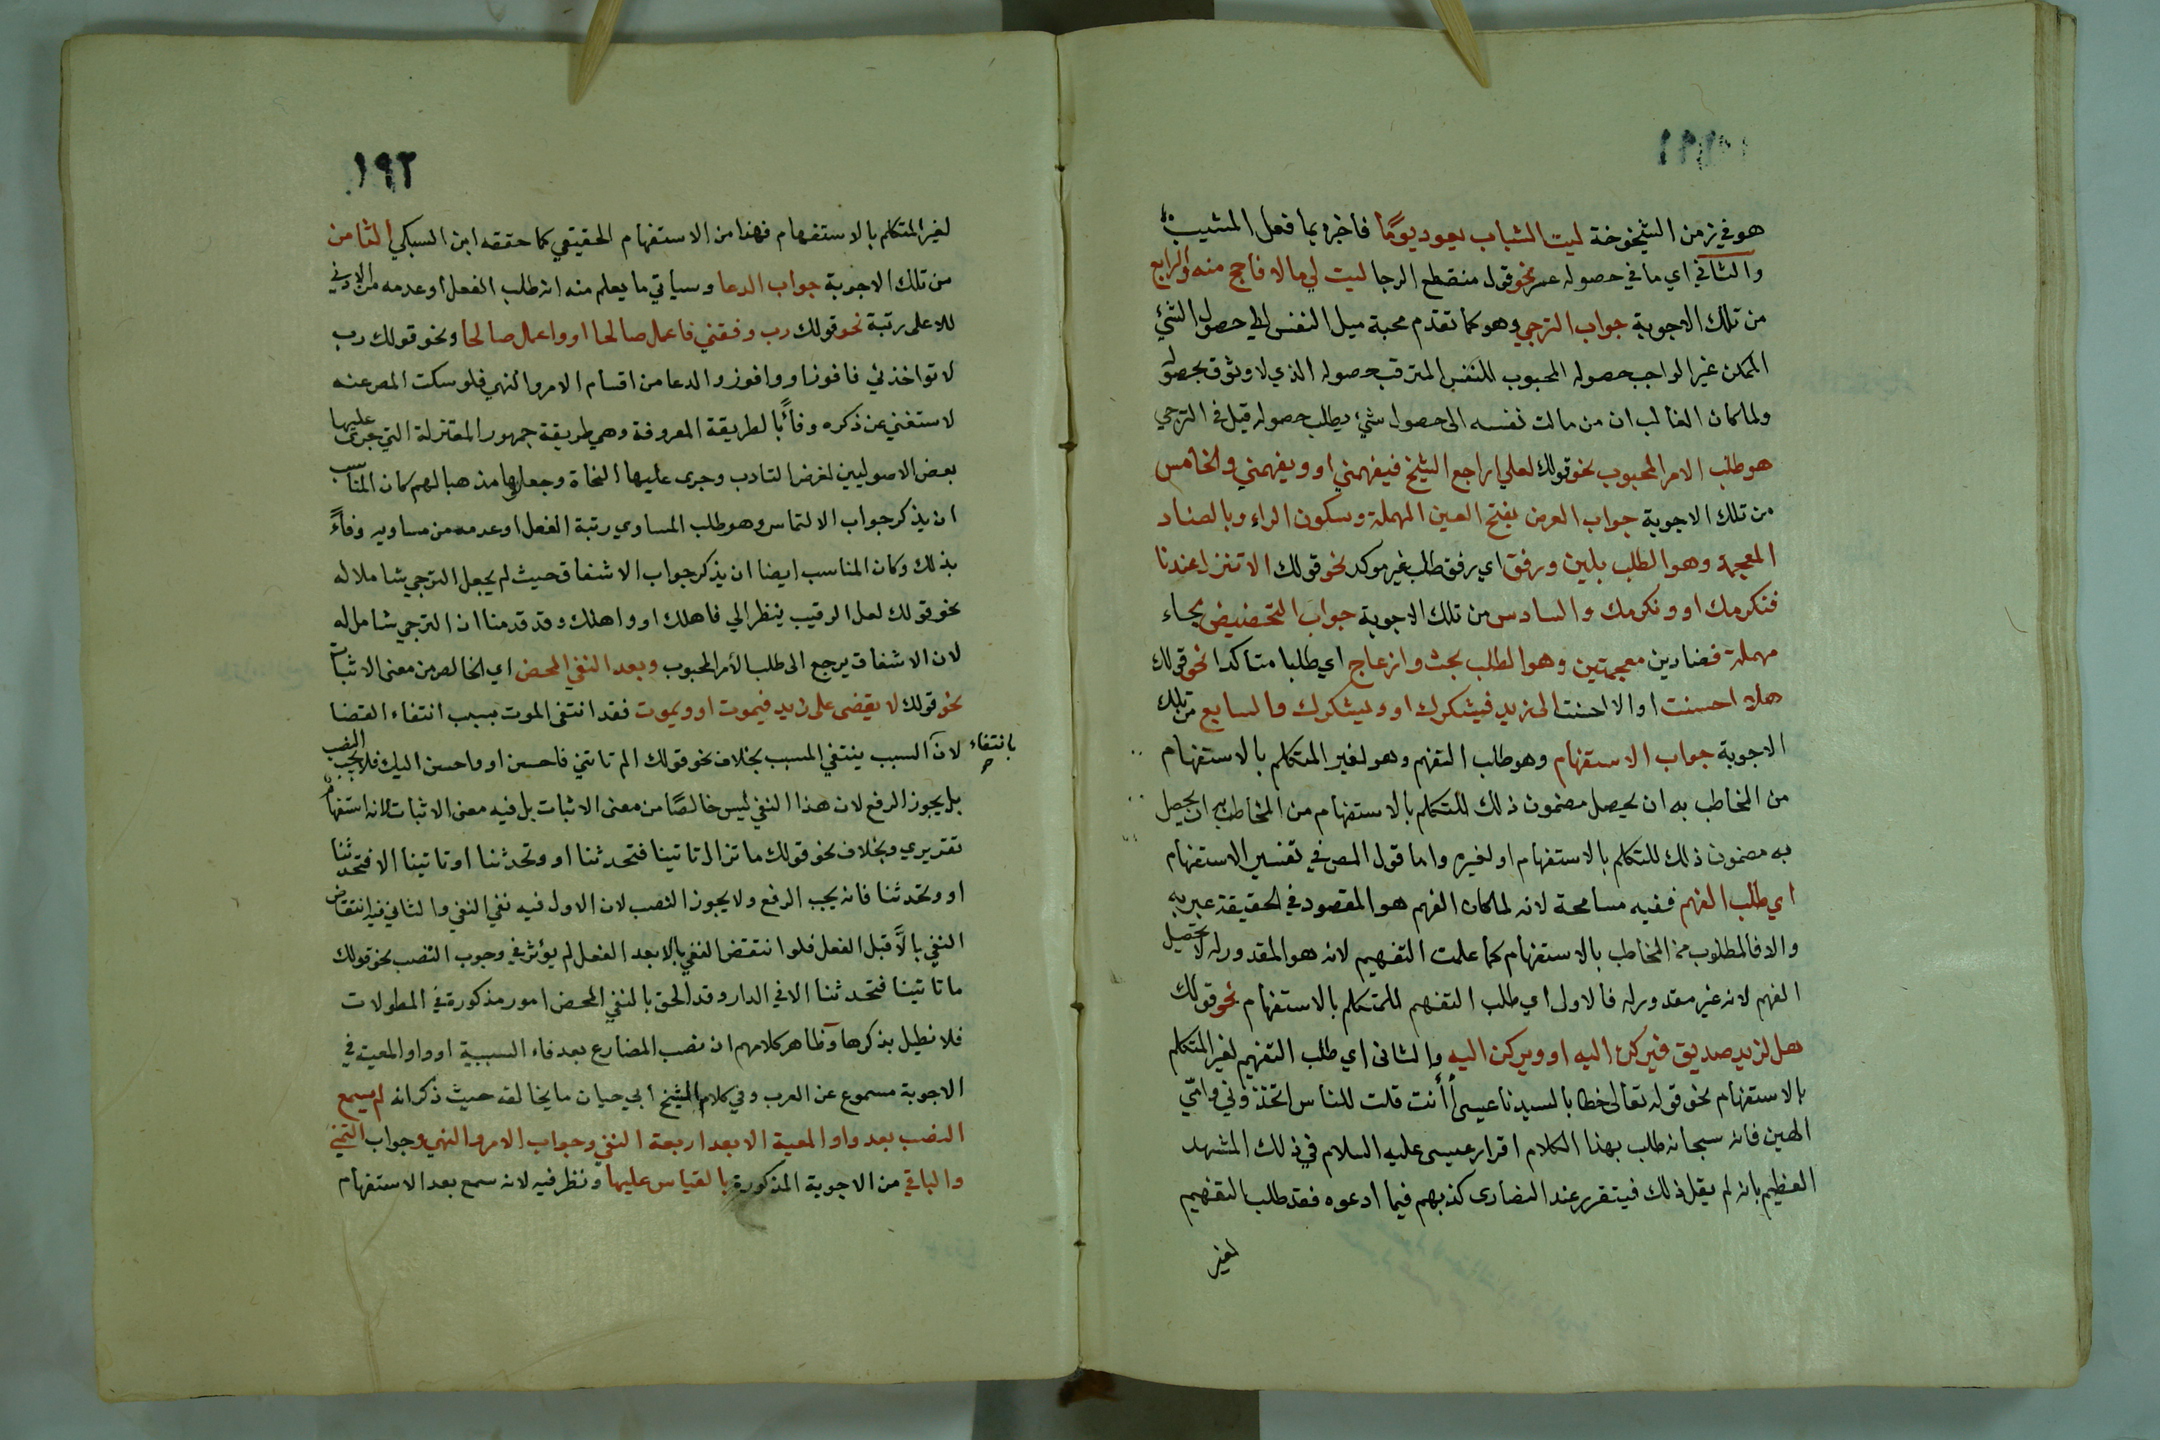 ١٩١
هو في زمن الشيخوخة ليت الشباب يعود يومًا فاخبره بما فعل المشيب
والثاني اي ما في حصوله عسر نحو قول منقطع الرجا ليت لي مالا فاحج منه والرابع
من تلك الاجوبة جواب الترجي وهو كما تقدم محبة ميل النفس الى حصول الشئ
الممكن غير الواجب حصوله المحبوب للنفس المترقب حصوله الذي لا وثوق بحصوله
ولما كان الغالب ان من مالت نفسه الى حصول شئ يطلب حصوله قيل في الترجي
هو طلب الامر المحبوب نحو قولك لعلي اراجع الشيخ فيفهمني او ويفهمني والخامس
من تلك الاجوبة جواب العرض بفتح العين المهملة وسكون الراء وبالضاد
المعجمة وهو الطلب بلين ورفق اي برفق طلب غير موكد نحو قولك الا تنزل عندنا
فنكرمك او ونكرمك والسادس من تلك الاجوبة جواب التحضيض بحاء
مهملة فضادين معجمتين وهو الطلب بحث وازعاج اي طلبا متاكدا نحو قولك
هلا احسنت او الا احسنت الى زيد فيشكرك او ويشكرك والسابع من تلك
الاجوبة جواب الاستفهام وهو طلب التفهم وهو لغير المتكلم بالاستفهام
من المخاطب به ان يحصل مضمون ذلك للمتكلم بالاستفهام من المخاطب به ان يحصل
به مضمون ذلك للمتكلم بالاستفهام او لغيره واما قول المص في تفسير الاستفهام
اي طلب الفهم ففيه مسامحة لانه لما كان الفهم هو المقصود في الحقيقة عبر به
والا فالمطلوب من المخاطب بالاستفهام كما علمت التفهيم لانه هو المقدور له لا تحصيل
الفهم لانه غير مقدور له فالاول اي طلب التفهم للمتكلم بالاستفهام نحو قولك
هل لزيد صديق فيركن اليه او ويركن اليه والثاني اي طلب التفهيم لغير المتكلم
بالاستفهام نحو قوله تعالى خطابا لسيدنا عيسى أأنت قلت للناس اتخذوني وامّي
الهين فانه سبحانه طلب بهذا الكلام اقرار عيسى عليه السلام في ذلك المشهد
العظيم بانه لم يقل ذلك فيتقرر عند النصارى كذبهم فيما ادعوه فقد طلب التفهيم
لغير
١٩٢
لغير المتكلم بالاستفهام فهذا من الاستفهام الحقيقي كما حققه ابن السبكي الثامن
من تلك الاجوبة جواب الدعا وسياتي ما يعلم منه انه طلب الفعل او عدمه من الادنى
للاعلى رتبة نحو قولك رب وفقني فاعمل صالحا او واعمل صالحا ونحو قولك رب
لا تواخذني فافوز او وافوز والدعا من اقسام الامر والنهي فلو سكت المص عنه
لاستغني عن ذكره وفاءً بالطريقة المعروفة وهي طريقة جمهور المعتزلة التي جرى عليها
بعض الاصوليين لغرض التادب وجرى عليها النحاة وجعلوها مذهبا لهم كان المناسب
ان يذكر جواب الالتماس وهو طلب المساوي رتبة الفعل او عدمه من مساويه وفاءً
بذلك وكان المناسب ايضا ان يذكر جواب الاشفاق حيث لم يجعل الترجي شاملا له
نحو قولك لعل الرقيب ينظر الي فاهلك او واهلك وقد قدمنا ان الترجي شامل له
لان الاشفاق يرجع الى طلب الأمر المحبوب وبعد النفي المحض اي الخالص من معنى الاثبات
نحو قولك لا يقضى على زيد فيموت او ويموت فقد انتفى الموت بسبب انتفاء القضا
لان السبب ينتفي المسبب بخلاف نحو قولك الم تاتني فاحسن او واحسن اليك فلا يجب النصب
بانتفاء
بل يجوز الرفع لان هذا النفي ليس خالصًا من معنى الاثبات بل فيه معنى الاثبات لانه استفهام
تقريري وبخلاف نحو قولك ما تزال تاتينا فتحدثنا او وتحدثنا او تاتينا الا فتحدثنا
او وتحدثنا فانه يجب الرفع ولا يجوز النصب لان الاول فيه نفي النفي والثاني فيه انتقاض
النفي بالاَّ قبل الفعل فلو انتقض النفي بالا بعد الفعل لم يؤثر في وجوب النصب نحو قولك
ما تاتينا فتحدثنا الا في الدار وقد الحق بالنفي المحض امور مذكورة في المطولات
فلا نطيل بذكرها وظاهر كلامهم ان نصب المضارع بعد فاء السببية او واو المعية في
الاجوبة مسموع عن العرب وفي كلام الشيخ ابي حيان ما يخالفه حيث ذكر انه لم يسمع
النصب بعد واو المعية الا بعد اربعة النفي وجواب الامر والنهي وجواب التمني
والباقي من الاجوبة المذكورة بالقياس عليها ونظر فيه لانه سمع بعد الاستفهام